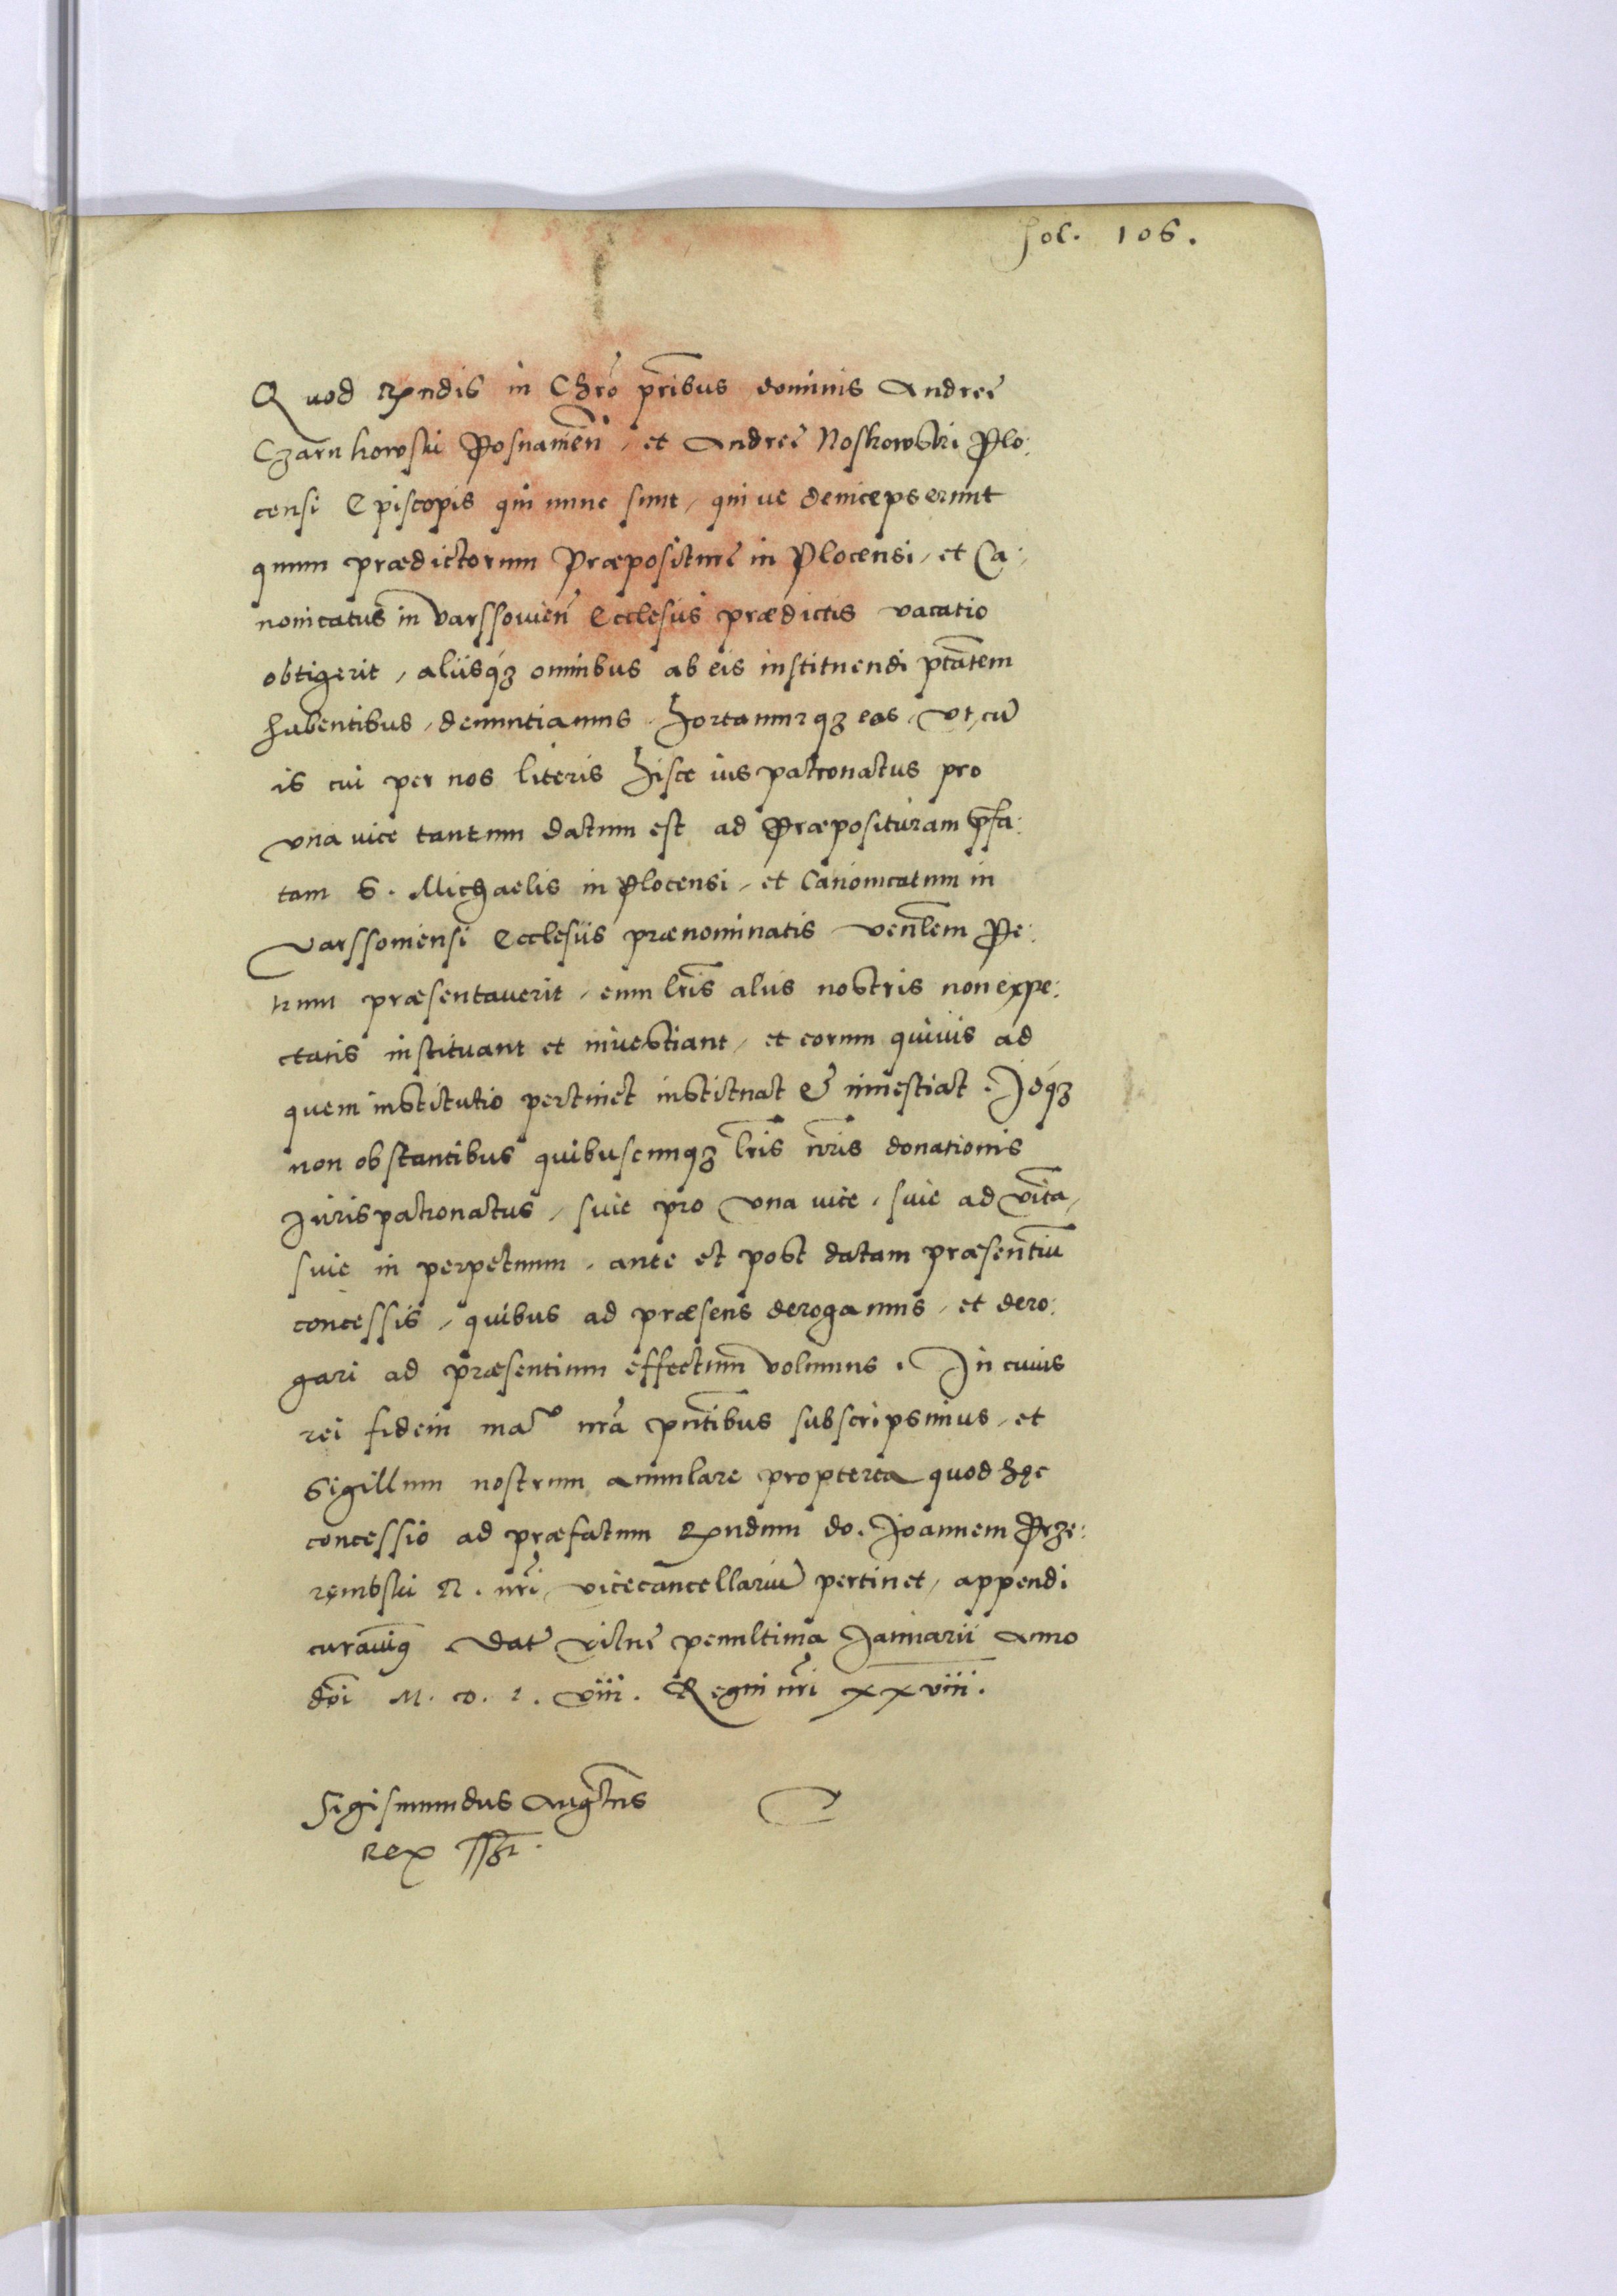 fol. 106.
Quod Rx̃ndis in Chrõ pr̃ibus dominis Andreę
Czarnkowski Posnamen̄ / et Andreę Noskowski Plo:
censi Episcopis qui nunc sunt / qui ue deinceps erunt
quum prædictorum Præpositurę in Plocensi / et Ca:
nonicatus in Varssouien̄ Ecclesiis prædictis vacatio
obtigerit / aliisq́ꝫ omnibus ab eis instituendi ptãtem
habentibus / denuntiamus hortamurqꝫ eos / vt cū
is cui per nos literis hisce ius patronatus pro
vna uice tantum datum est ad Præposituram p̃fa:
tam S. Michaelis in Plocensi / et Canonicatum in
Varssouiensi Ecclesiis prænominatis ven̄lem Pe:
trum præsentauerit / eum lr̃is aliis nostris non expe:
ctatis instituant et inuestiant / et eorum quiuis ad
quem institutio pertinet instituat & inuestiat. Idq́ꝫ
non obstantibus quibuscunqꝫ lr̃is nr̃is donationis
Iurispatronatus / siue pro vna uice / siue ad vitā /
siue in perpetuum / ante et post datam præsentiū
concessis / quibus ad præsens derogamus / et dero:
gari ad præsentium effectum volumus. In cuius
rei fidem maͫ nr̃a pñtibus subscripsimus / et
Sigillum nostrum annulare propterea quod hęc
concessio ad præfatum Rx̃ndum do. Ioannem Prze:
rembski R. nr̃i vicecancellariū pertinet / appendi
curauimꝰ. Dat̃ Vilnę penultima Ianuarii Anno
dñi M. D. L. VIII. Regni nr̃i XXVIII.
Sigismundus Augustus
Rex sszt.